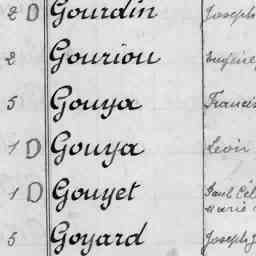 2 D Gourdin Joseph
2 Gouriou Eugène
5 Gouya Francis
1 D Gouya Léon
1 D Gouyet Paul Cél
Marie
5 Goyard Joseph J